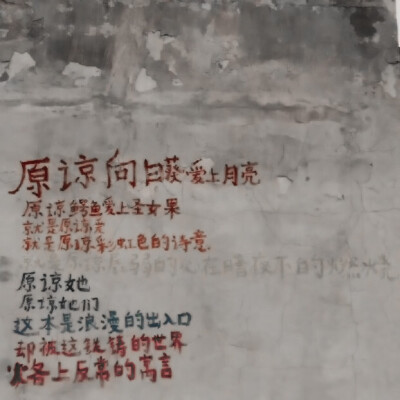 原谅向日葵爱上月亮
原谅鳄鱼爱上圣女果
就是原谅
就是原谅彩虹色的诗意
就是原谅 的心在暗夜下的燃烧
原谅她
原谅她们
这本是浪漫的出入口
却被这 的世界
各上反常的寓言